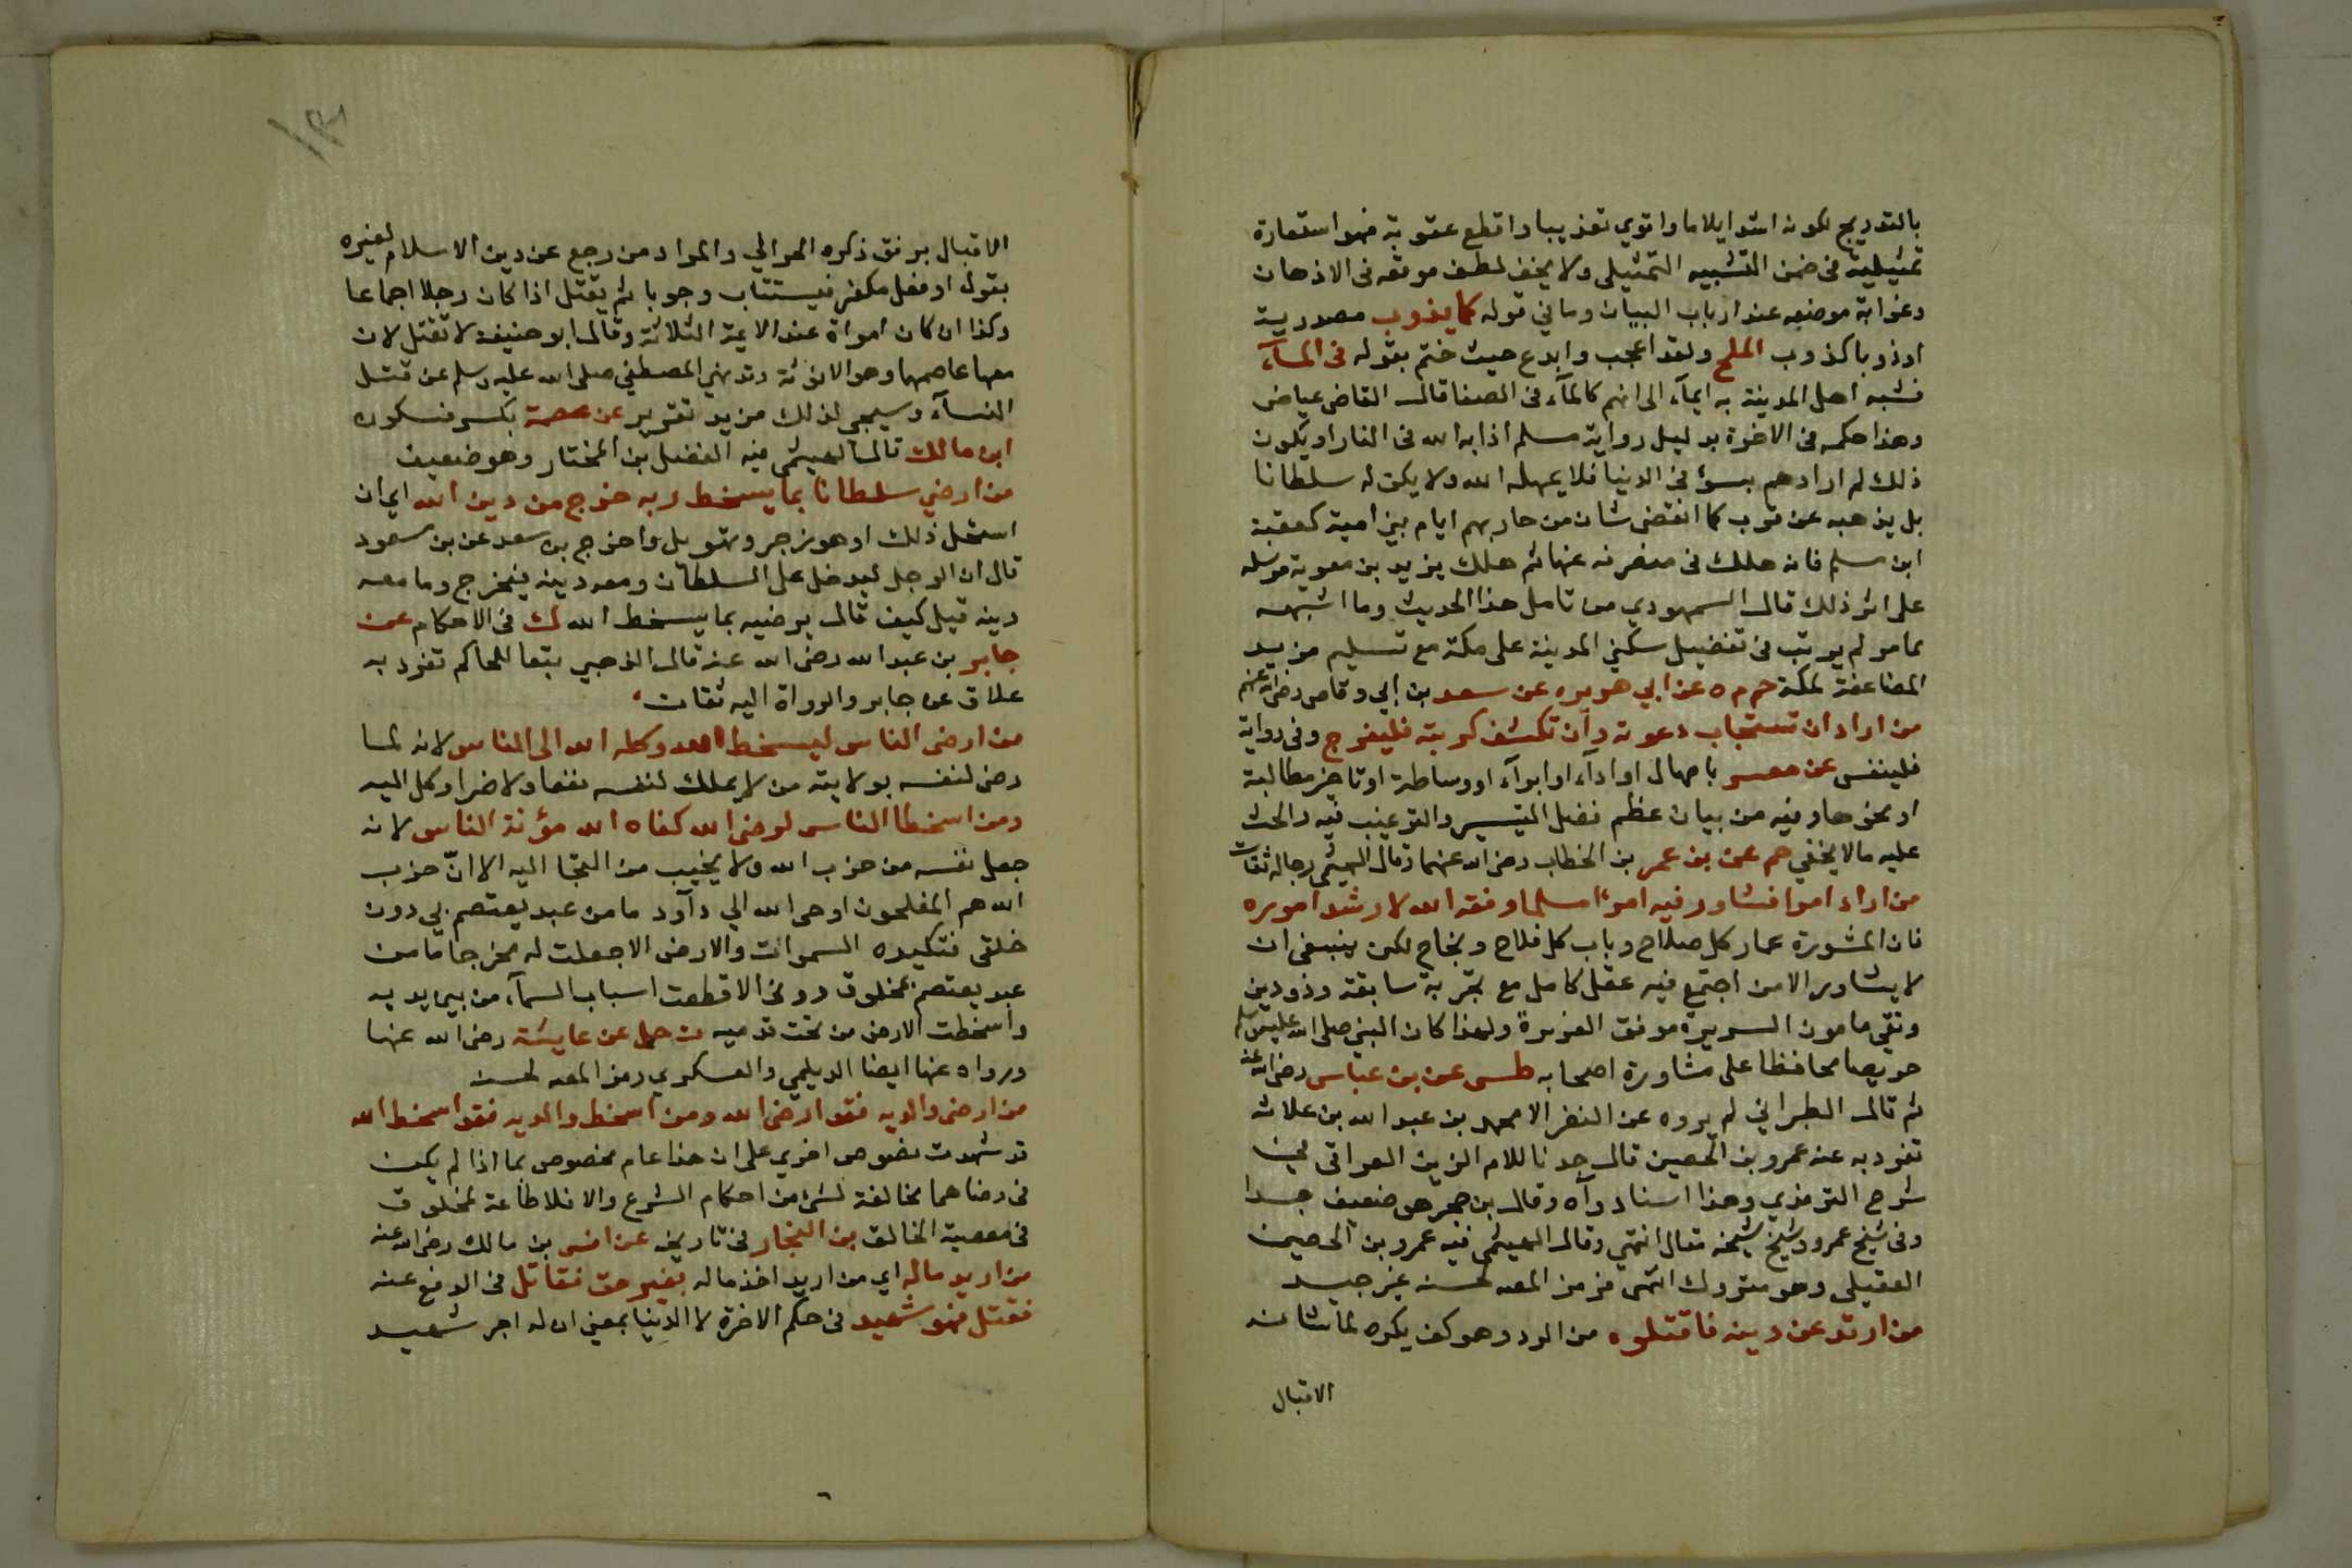 بالتدريج لكونه اشد ايلاما واقوي تعذيبا واقطع عقوبة فهو استعارة
تمثيلية فى ضمن التشبيه التمثيلى ولا يخفى لطف موقعه فى الاذهان
وغرابة موضعه عند ارباب البيان وما في قوله كما يذوب مصدرية
اى ذوبا كذوب الملح ولقد اعجب وابدع حيث ختم بقوله فى المآء
فشبه اهل المدينة به ايمآء الى انهم كالمآء فى الصفا قال القاضى عياض
وهذا حكمه فى الاخرة بدليل رواية مسلم اذابه الله فى النار او يكون
ذلك لم ارادهم بسوء فى الدنيا فلا يمهله الله ولا يمكن له سلطانا
بل يذهبه عن قرب كما انقضى شان من حاربهم ايام بني امية كعقبة
ابن مسلم فانه هلك فى منصرفه عنها ثم هلك يزيد بن معوية مرسله
على اثر ذلك قال السمهودي من تامل هذا الحديث وما اشبهه
مما مر لم يرتب فى تفضيل سكني المدينة على مكة مع تسليم مزيد
المضاعفة لمكة حم م ه عن ابي هريره عن سعد بن ابي وقاص رضى الله عنهم
من اراد ان تستجاب دعوته وان تكشف كربته فليفرج وفى رواية
فلينفس عن معسر بامهال او ادآء او ابرآء او وساطة او تاخير مطالبة
او نحوها وفيه من بيان عظم فضل التيسير والترغيب فيه والحث
عليه مالا يخفي حم عن بن عمر بن الخطاب رضى الله عنهما وقال الهيثمى رجاله ثقات
من اراد امرا فشاور فيه امرءا مسلما وفقه الله لارشد اموره
فان المشورة عماد كل صلاح وباب كل فلاح ونجاح لكن ينبغى ان
لا يشاور الا من اجتمع فيه عقل كامل مع تجربة سابقة وذو دين
وتقي مامون السريرة موفق العزيمة ولهذا كان النبي صلى الله عليه وسلم
حريصا محافظا على مشاورة اصحابه طس عن بن عباس رضى الله عنه
ثم قال الطبراني لم يروه عن النضر الا محمد بن عبد الله بن علاثه
تفرد به عنه عمرو بن الحصين قال جدنا للام الزين العراقى في
شرح الترمذي وهذا اسناد واه وقال بن حجر هو ضعيف جدا
وفى شيخ عمرو وشيخ شيخه مقال انتهي وقال الهيثمى فيه عمرو بن الحصين
العقيلى وهو متروك انتهى فرمز المص لحسنه غير جيد
من ارتد عن دينه فاقتلوه من الرد وهو كف بكره لما شانه
الاقبال
الاقبال برفق ذكره الحرالي والمراد من رجع عن دين الاسلام لغيره
بقول او فعل مكفر فيستتاب وجوبا ثم يقتل اذا كان رجلا اجماعا
وكذا ان كان امراة عند الايمة الثلاثة وقال ابو حنيفة لا تقتل لان
معها عاصمها وهو الانوثة وقد نهي المصطفي صلى الله عليه وسلم عن قتل
النسآء وسيجى لذلك مزيد تقرير عن عصمة بكسر فسكون
ابن مالك قال الهيثمى فيه الفضل بن المختار وهو ضعيف
من ارضي سلطانا بما يسخط ربه خرج من دين الله اي ان
استحل ذلك او هو زجر وتهويل واخرج بن سعد عن بن مسعود
قال ان الرجل ليدخل على السلطان ومعه دينه فيخرج وما معه
دينه قيل كيف قال يرضيه بما يسخط الله ك فى الاحكام عن
جابر بن عبد الله رضى الله عنه قال الذهبي تبعا للحاكم تفرد به
علاق عن جابر والرواة اليه ثقات
من ارضى الناس ليسخط الله وكله الله الى الناس لانه لما
رضى لنفسه بولاية من لا يملك لنفسه نفعا ولا ضرا وكل اليه
ومن اسخط الناس لرضى الله كفاه الله مؤنة الناس لانه
جعل نفسه من حزب الله ولا يخيب من التجا اليه الا انّ حزب
الله هم المفلحون اوحى الله الي دآود ما من عبد يعتصم بي دون
خلقى فتكيده السموات والارض الا جعلت له مخرجا وما من
عبد يعتصم بمخلوق دونى الا قطعت اسباب السمآء من بين يديه
واسخطت الارض من تحت قدميه ت حل عن عايشة رضى الله عنها
ورواه عنها ايضا الديلمي والعسكري رمز المص لحسنه
من ارضى والديه فقد ارضى الله ومن اسخط والديه فقد اسخط الله
قد شهدت نصوص اخري على ان هذا عام مخصوص بما اذا لم يكن
فى رضاهما مخالفة لشئ من احكام الشرع والا فلا طاعة لمخلوق
فى معصية الخالق بن النجار فى تاريخه عن انس بن مالك رضى الله عنه
من اريد ماله اي من اريد اخذ ماله بغير حق فقاتل فى الدفع عنه
فقتل فهو شهيد فى حكم الاخرة لا الدنيا بمعني ان له اجر شهيد